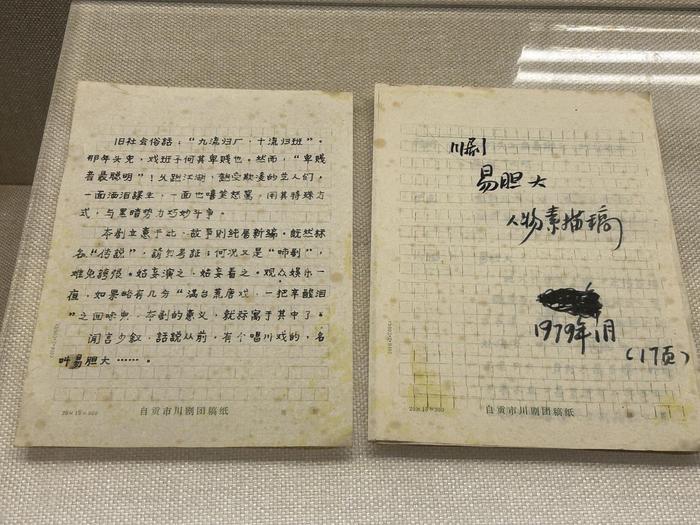 旧社会俗話：“九流归厂，十流归班”。
那年头兒，戏班子何其卑贱也。然而，“卑贱
者最聪明”！久跑江湖，飽受欺凌的艺人们，
一面洒泪谋生，一面也嘻笑怒骂，用其特殊方
式，与黑暗势力巧妙斗争。
本剧立意于此，故事则纯属新编。既然标
名“传说”，請勿考証；何况又是“喇剧”，
难免誇張。姑妄演之，姑妄看之。观众娱乐一
夜，如果略有几分“满台荒唐戏，一把辛酸泪
”之回味兒，本剧的意义，就盡寓于其中了。
閒言少叙，話説从前，有个唱川戏的，名
叫易胆大……。
20×15=300
自贡市川剧团稿纸
川剧
易胆大
人物素描稿
1979年1月
（17页）
20×15=300
自贡市川剧团稿纸